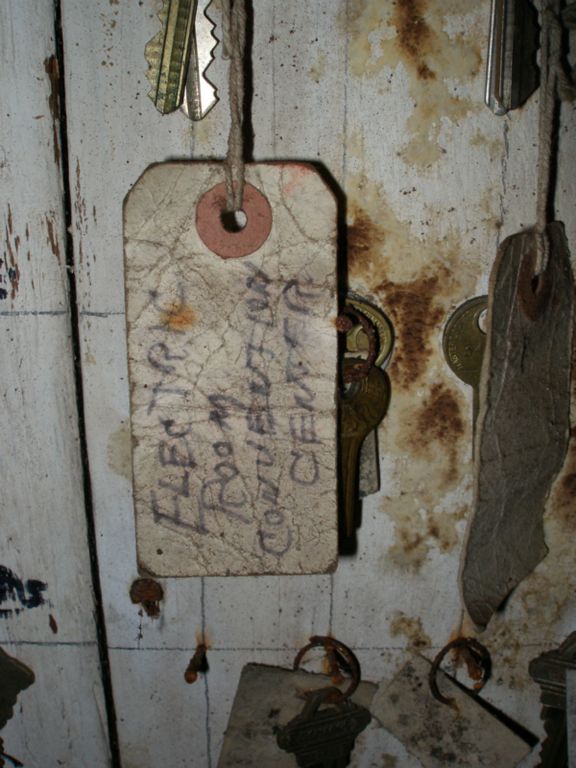 ELECTRIC
ROOM
CONVENTION
CENTER